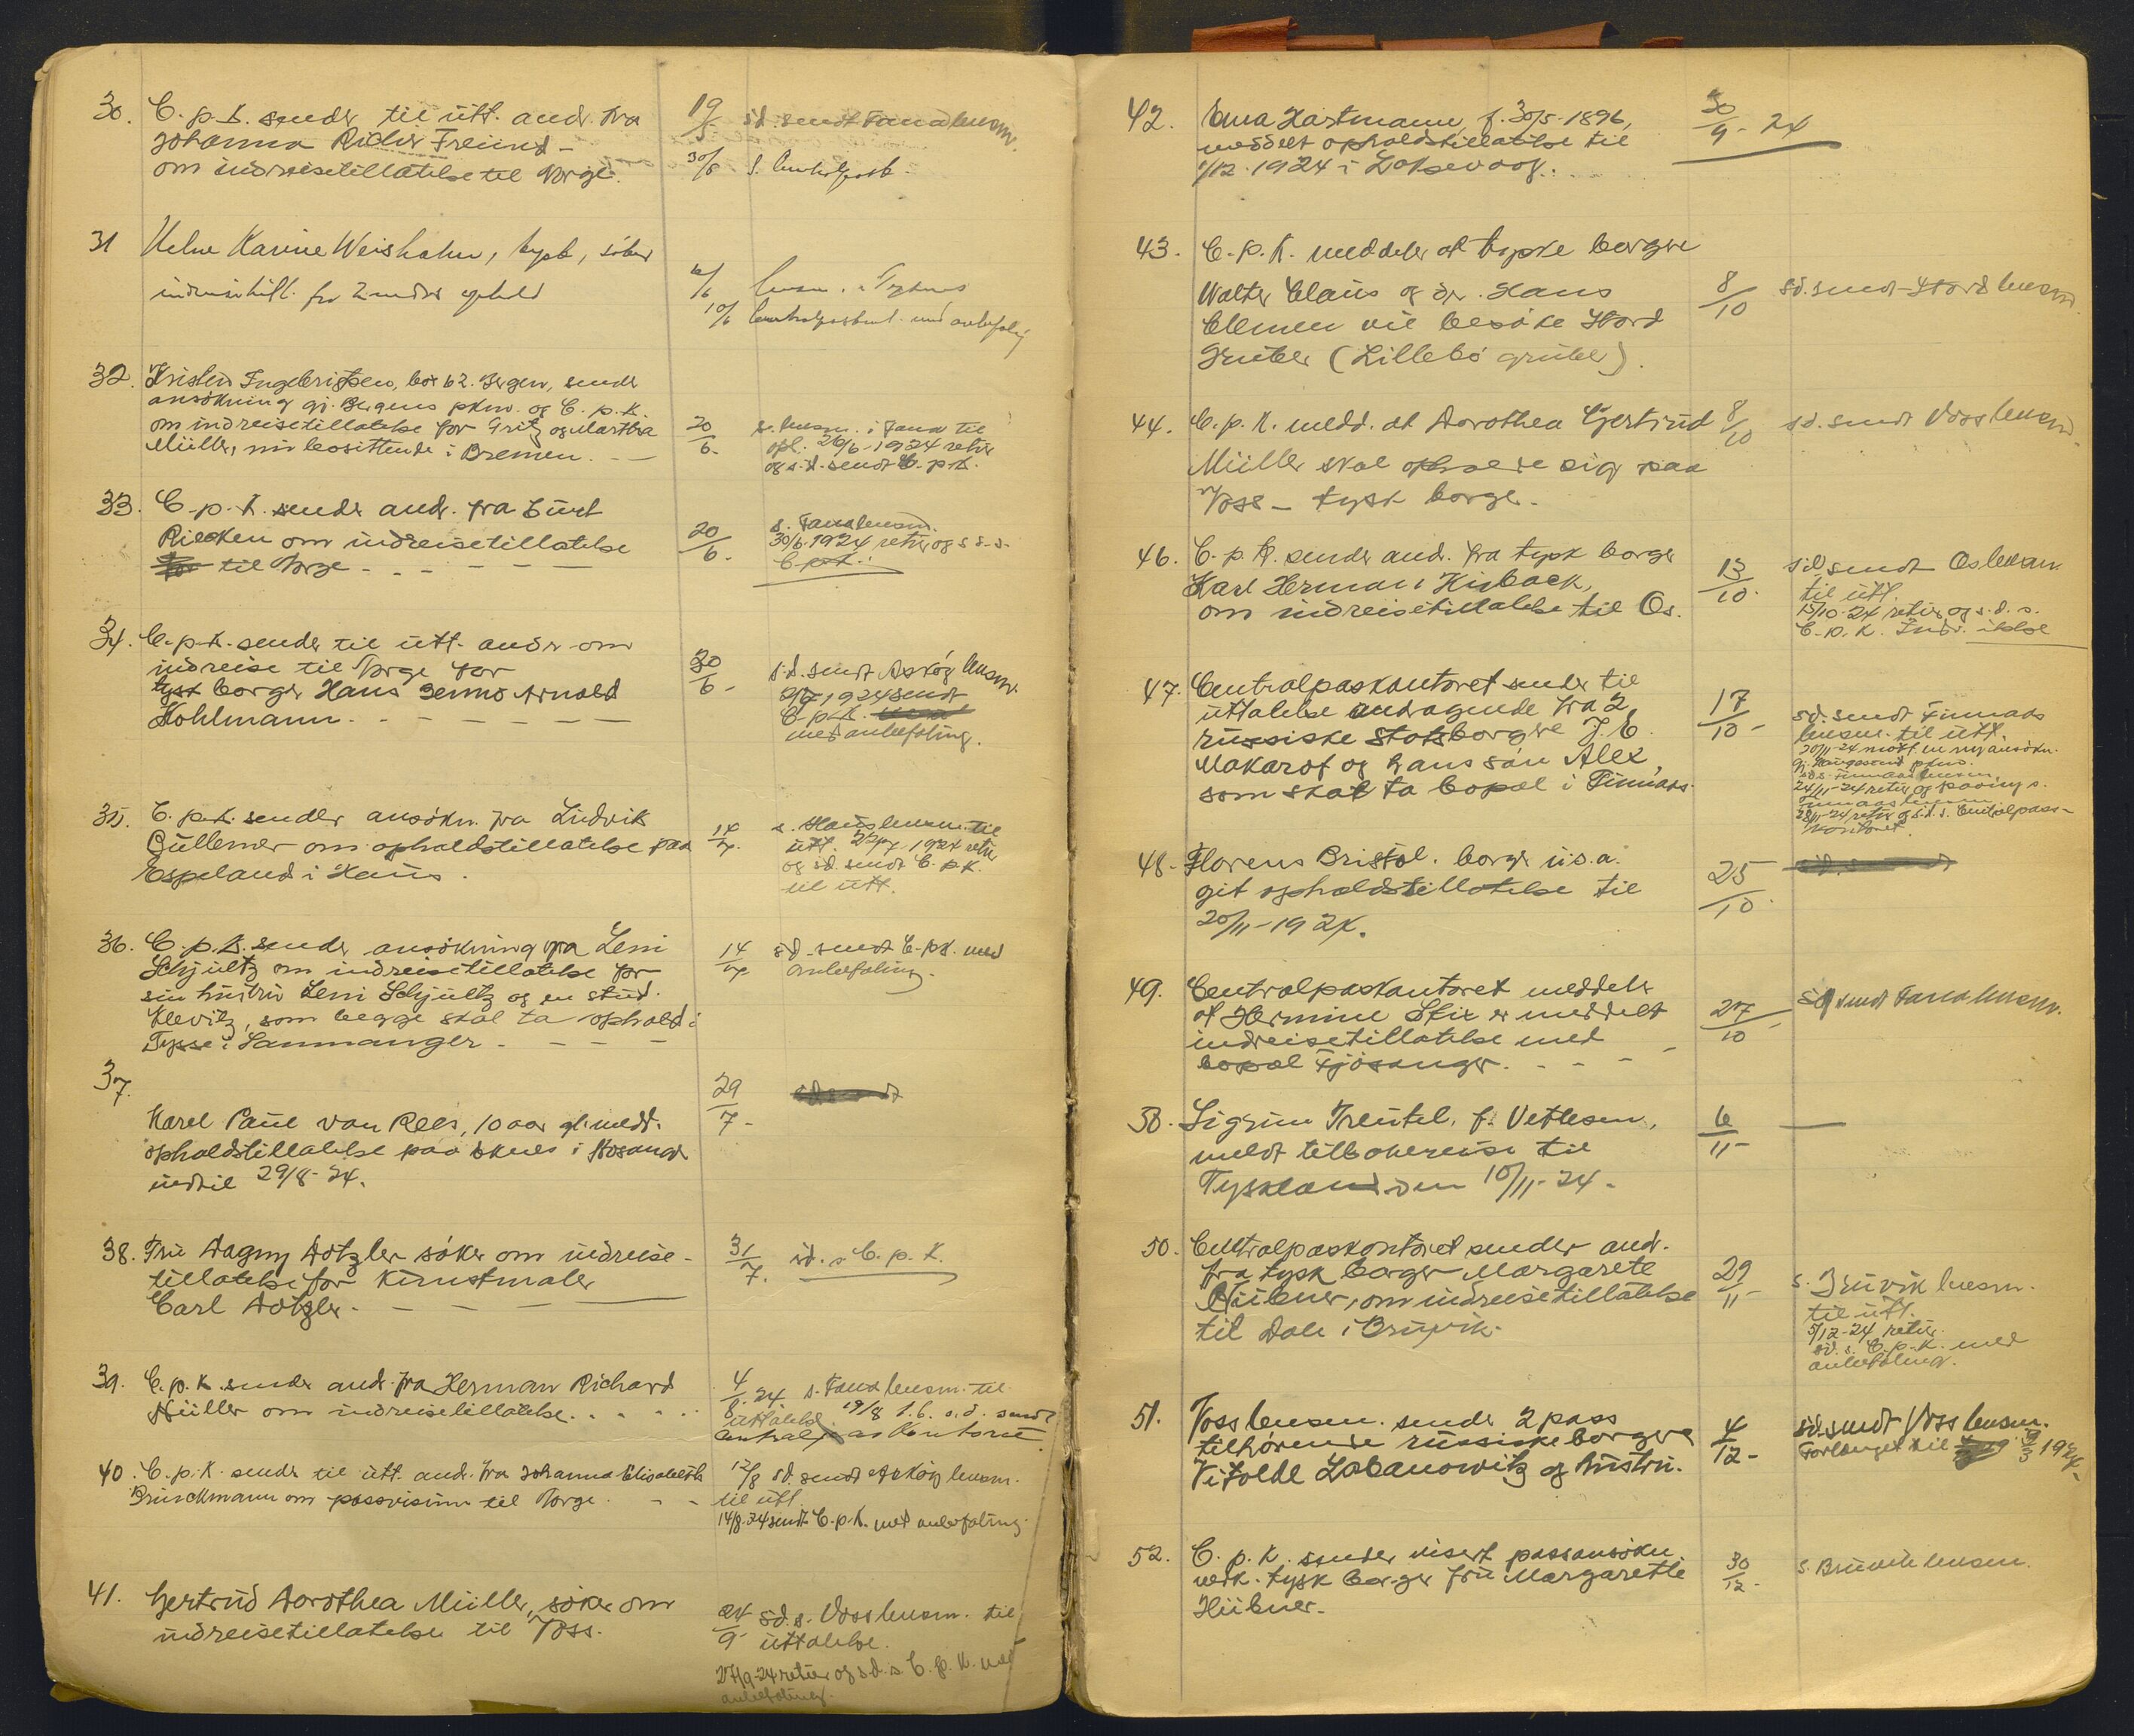 30. C. p. K. sender til utt. andr. fra
Johanna Richer Freund -
om indreisetillatelse til Norge.
19/5 s.d. sendt Fana lensm.
30/5 s. Centralpassk.
31 Karine Weishahn, tysk, söker
indreisetill. for 2 mdrs ophold
6/6 lensm. i Tysnes
10/6 Centralpasskont. med anbefaling
32. Kristen Ingebrigtsen, box 62. Bergen, sender
ansökning gj. Bergens pkm. og C. p. K.
om indreisetillatelse for Fritz og Martha
Müller, nu bosittende i Bremen. —
20/6. s. lensm. i Fana til
opl. 26/6-1924 retur
og s.d. sendt C. p. K.
33. C. p. K. sender andr. fra Curt
Riecken om indreisetillatelse
til Norge - - - - -
20/6. s. Fana lensm.
30/6. 1924 retur og s.d.s.
C. p. K.
34. C. p. K. sender til utt. andr om
indreise til Norge for
tysk borger Hans Benno Arnold
Kohlmann. - - - - -
30/6- s.d. sendt Askög lensm.
1924 sendt
C. p. K.
med anbefaling.
35. C. p. K. sender ansökn. fra Ludvik
Cüllemer om opholdstillatelse paa
Espeland i Haus.
14/7. s. Haus lensm. til
utt. 22/7-1924 retur
og s.d. sendt C. p. K.
til utt.
36. C. p. K. sender ansökning fra Leni
Schjultz om indreisetillatelse for
sin hustru Leni Schjultz og en stud.
Klevitz, som begge skal ta ophold i
Tysse i Sammanger. - - -
14/7 s.d. sendt C. p. K. med
anbefaling.
37.
Karel Paul van Rees, 10 aar gl. medd.
opholdstillatelse paa i Hosanger
indtil 29/8-24.
29/7-
38. Fru Dagny Dötzler söker om indreise-
tillatelse for Kunstmaler
Carl Dötzler. - - -
31/7. s.d. s C. p. K.
39. C. p. K. sender andr. fra Herman Richard
Müller om indreisetillatelse. . . .
4/8. 24. s. Fana lensm. til
uttalelse. 19/8 t.b. s.d. sendt
Centralpaskontoret.
40. C. p. K. sender til utt. andr. fra Johanna Elisabeth
Brinckmann om passvisum til Norge. - -
12/8 s.d. sendt Askög lensm.
til utt.
14/8. 24 sendt C. p. K. med anbefaling.
41. Gertrud Dorothea Müller, söker om
indreisetillatelse til Voss.
24/9 s.d. s. Voss lensm. til
uttalelse.
27/9-24 retur og s.d. s C. p. K. med
anbefaling.
42. Erna Hartmann, f. 30/5-1896,
meddelt opholdstillatelse til
1/12. 1924 i Laksevaag. . .
30/9- 24
43. C. p. K. meddeler at tyske borgere
Walter Claus og dr. Hans
Clemen vil besöke Stord
Gruber (Lillebö gruber).
8/10 s.d. sendt Stord lensm.
44. C. p. K. medd. at Dorothea Gertrud
Müller skal opholde sig paa
Voss - tysk borger.
8/10 s.d. sendt Voss lensm.
46. C. p. K. sender andr. fra tysk borger
Karl Herman Kirback,
om indreisetillatelse til Os.
13/10. s.d. sendt Os lensm.
til utt.
15/10-24 retur og s.d. s.
C. p. K. Indr. ikke
47. Centralpaskontoret sender til
uttalelse andragende fra 2
russiske statsborgere J. E.
Makarof og hans sön Alex,
som skal ta bopæl i Finnaas.
17/10- s.d. sendt Finnaas
lensm. til utt.
20/11-24 mott. en ny ansökn.
gj. Haugesund pkm.
s.d.s. Finnaas lensm.
24/11-24 retur og
Finnaas lensm.
28/11-24 retur og s.d. s. Centralpass-
kontoret.
48- Florens Bristol. borger u.s.a.
git opholdstillatelse til
20/11-1924.
25/10.
49. Centralpaskontoret meddeler
at Hermine Stix er meddelt
indreisetillatelse med
bopæl Fjösanger. - - -
27/10 - s.d. sendt Fana lensm.
50. Sigrun Treutel, f. Vetlesen,
meldt tilbakereise til
Tyskland den 10/11-24.
6/11- —
50. Centralpaskontoret sender andr.
fra tysk borger Margarete
Hübner, om indreisetillatelse
til Dale i Bruvik.
29/11- s. Bruvik lensm.
til utt.
5/12-24 retur.
s.d. s. C. p. K. med
anbefaling.
51. Voss lensm. sender 2 pass
tilhörende russiske borgere
Vitolde Lobanowitz og hustru.
4/12- s.d. sendt Voss lensm.
Forlenget til 9/3 1924-
52. C. p. K. sender visert passansökn.
vedk. tysk borger fru Margarette
Hübner.
30/12- s. Bruvik lensm.